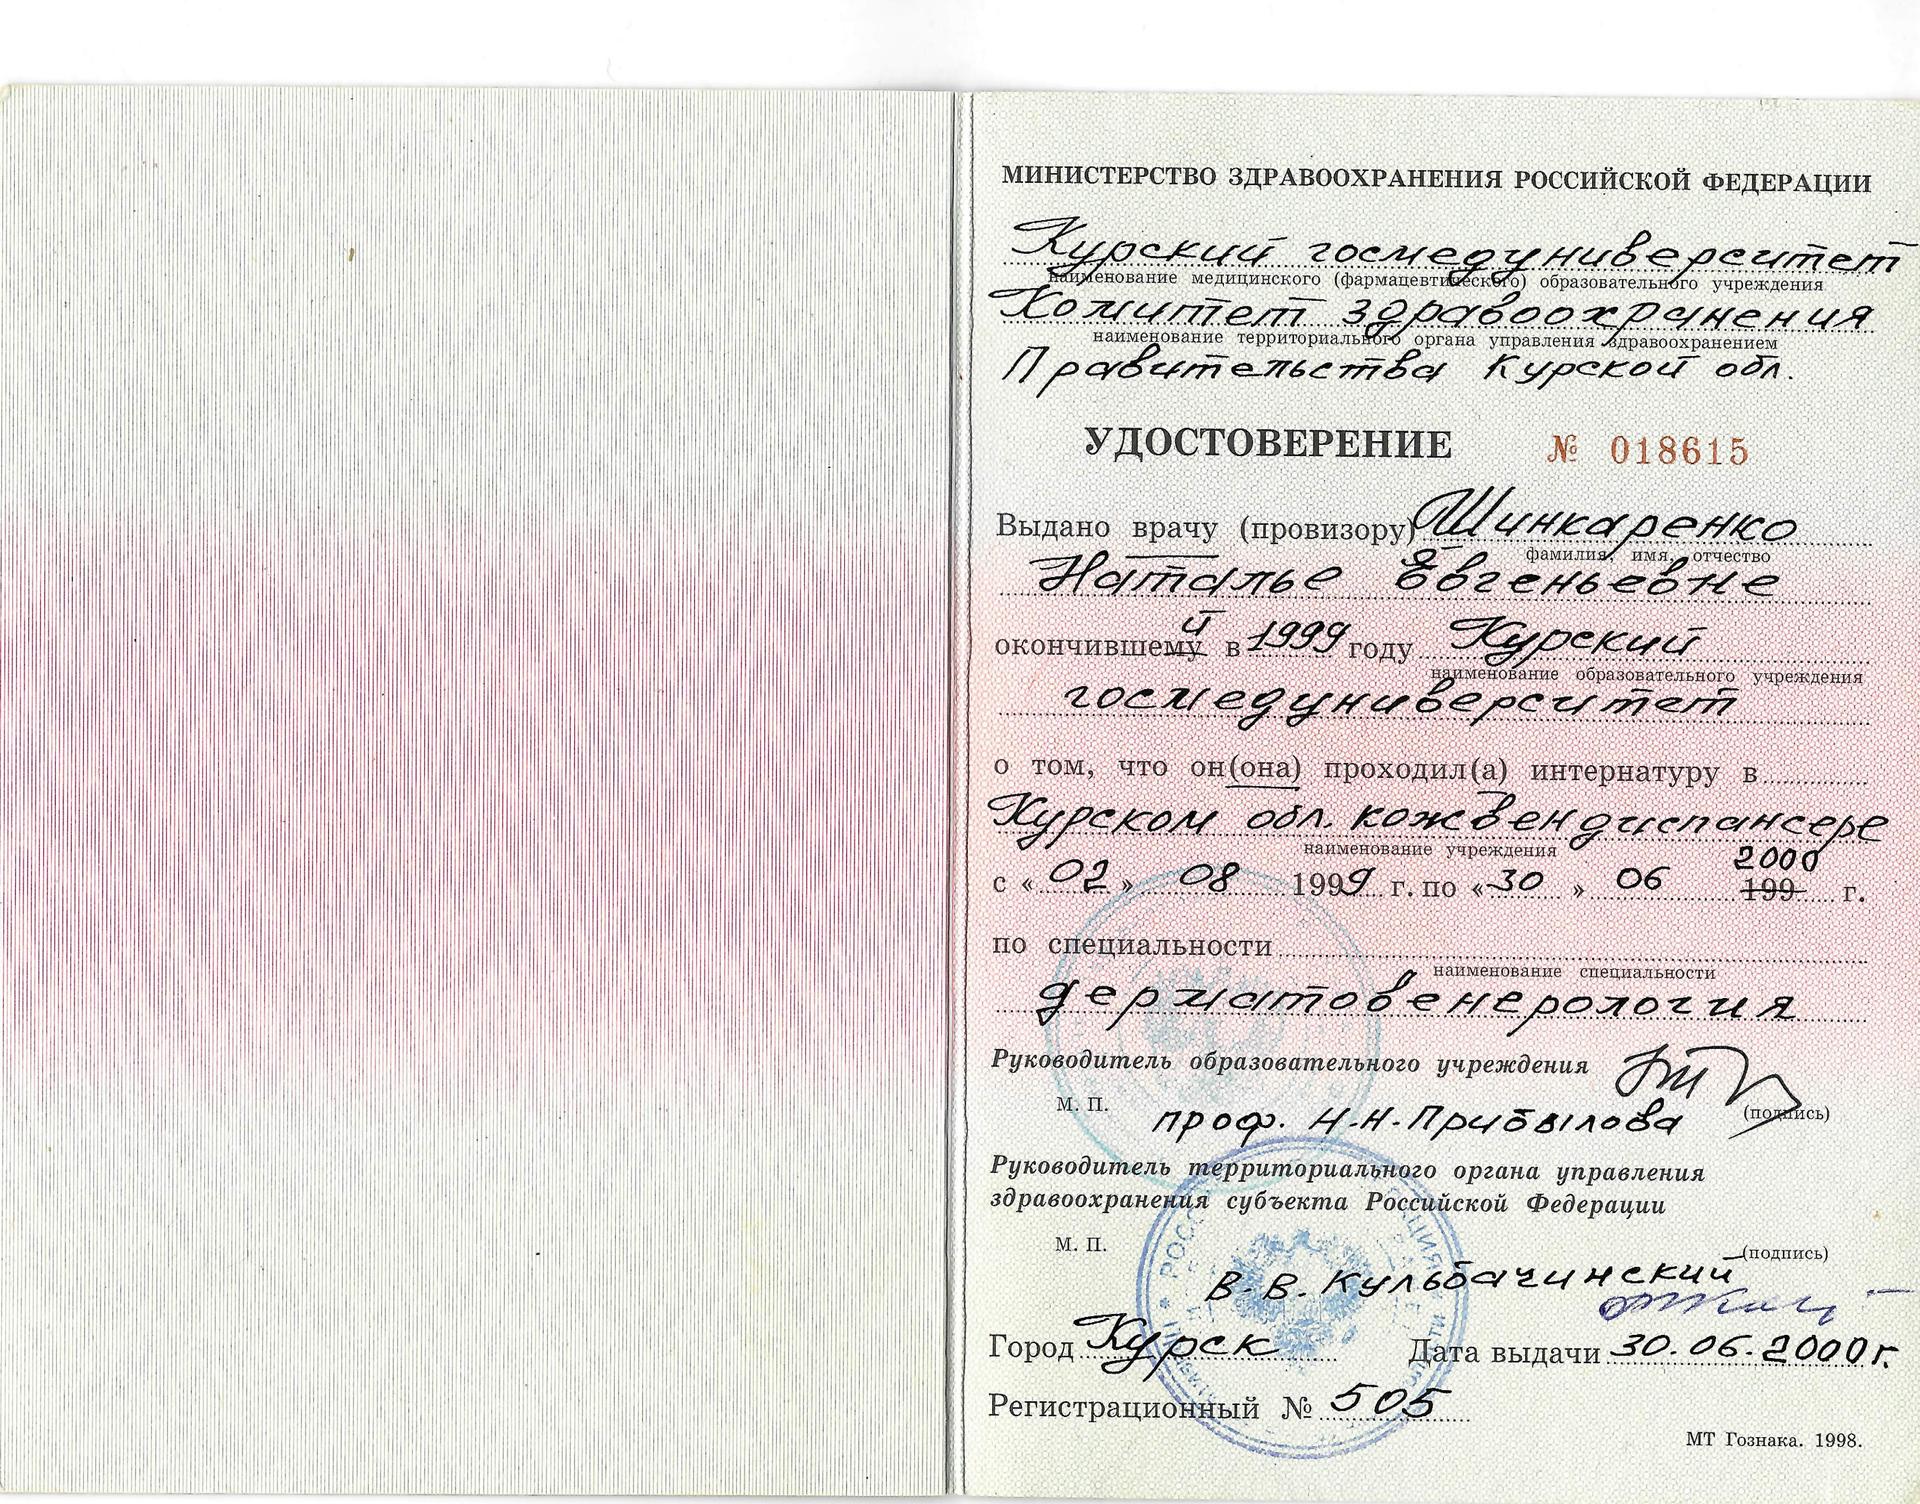 МИНИСТЕРСТВО ЗДРАВООХРАНЕНИЯ РОССИЙСКОЙ ФЕДЕРАЦИИ
Курский госмедуниверситет
наименование медицинского (фармацевтического) образовательного учреждения
Комитет здравоохранения
наименование территориального органа управления здравоохранением
Правительства Курской обл.
УДОСТОВЕРЕНИЕ № 018615
Выдано врачу (провизору) Шинкаренко
фамилия, имя, отчество
Наталье Евгеньевне
й
окончившему в 1999 году Курский
наименование образовательного учреждения
госмедуниверситет
о том, что он(она) проходил(а) интернатуру в
Курском обл. кожвендиспансере
наименование учреждения
2000
с «02» 08 1999 г. по «30» 06 199 г.
по специальности
наименование специальности
дерматовенерология
Руководитель образовательного учреждения
М. П. (подпись)
проф. Н.Н.Прибылова
Руководитель территориального органа управления
здравоохранения субъекта Российской Федерации
М. П. (подпись)
В.В. Кульбачинский
Город Курск Дата выдачи 30.06.2000 г.
Регистрационный № 505
МТ Гознака. 1998.